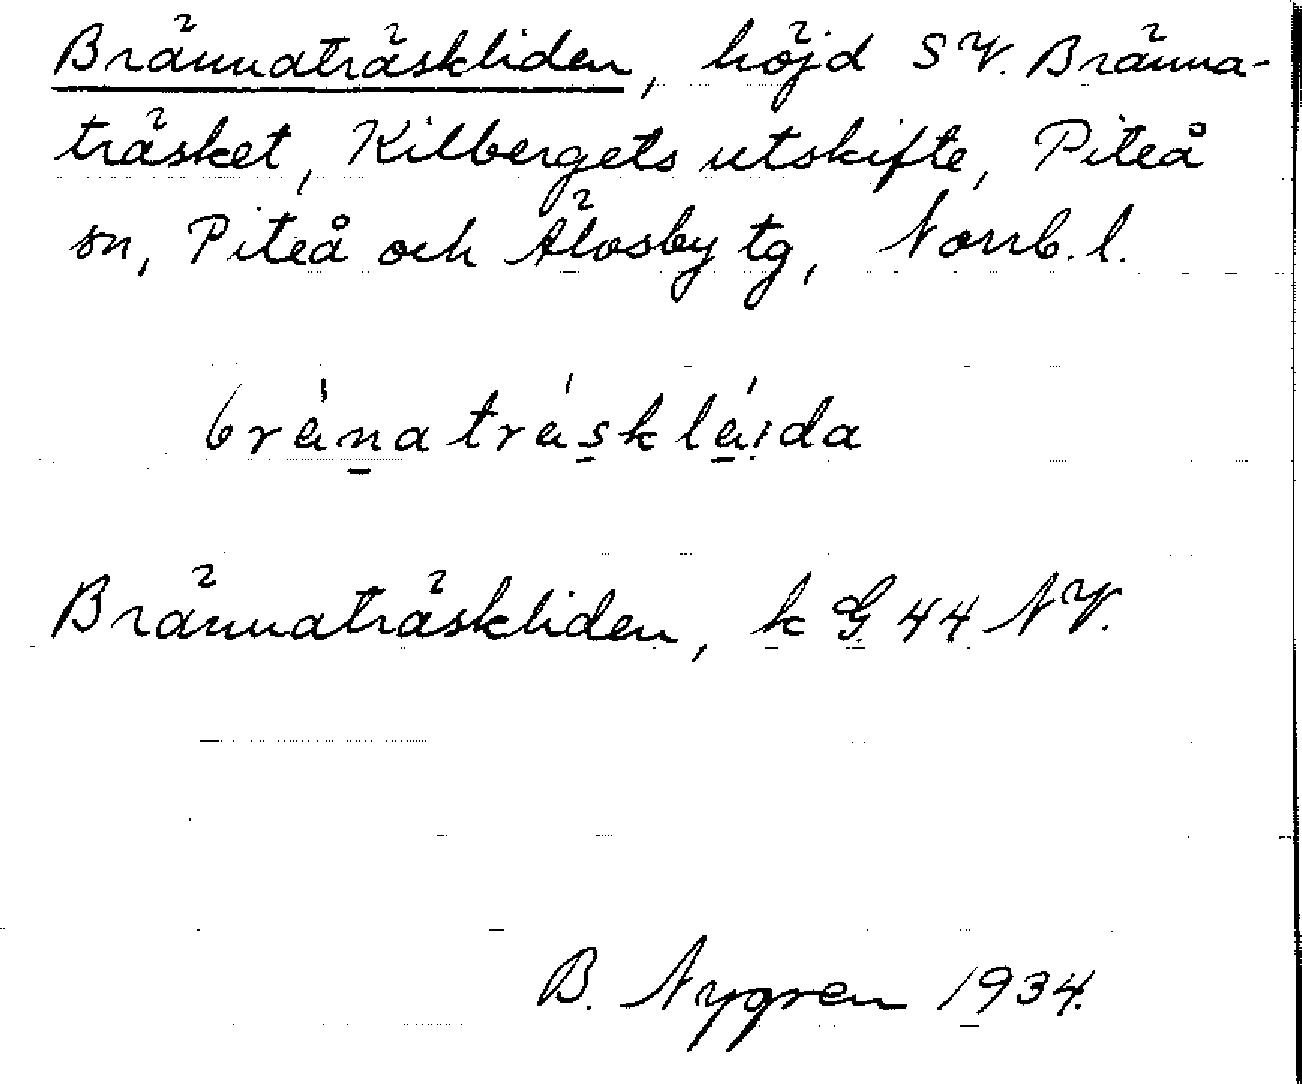 Brännaträskliden, höjd SV. Bränna-
träsket, Kilbergets utskifte, Piteå
sn, Piteå och Älvsby tg, Norrb. l.
bránatráskláida
Brännaträskliden, k G 44 NV.
B. Nygren 1934.